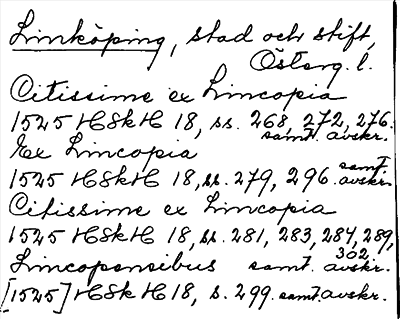 Linköping, stad och stift,
Österg. l.
Citissime ex Lincopia
1525 HSkH 18, ss. 268, 272, 276.
samt. avskr.
Ex Lincopia
1525 HSkH 18, ss. 279, 296. samt. avskr.
Citissime ex Lincopia
1525 HSkH 18, ss. 281, 283, 284, 289,
302,
Lincopensibus samt. avskr.
[1525] HSkH 18, s. 299. samt. avskr.